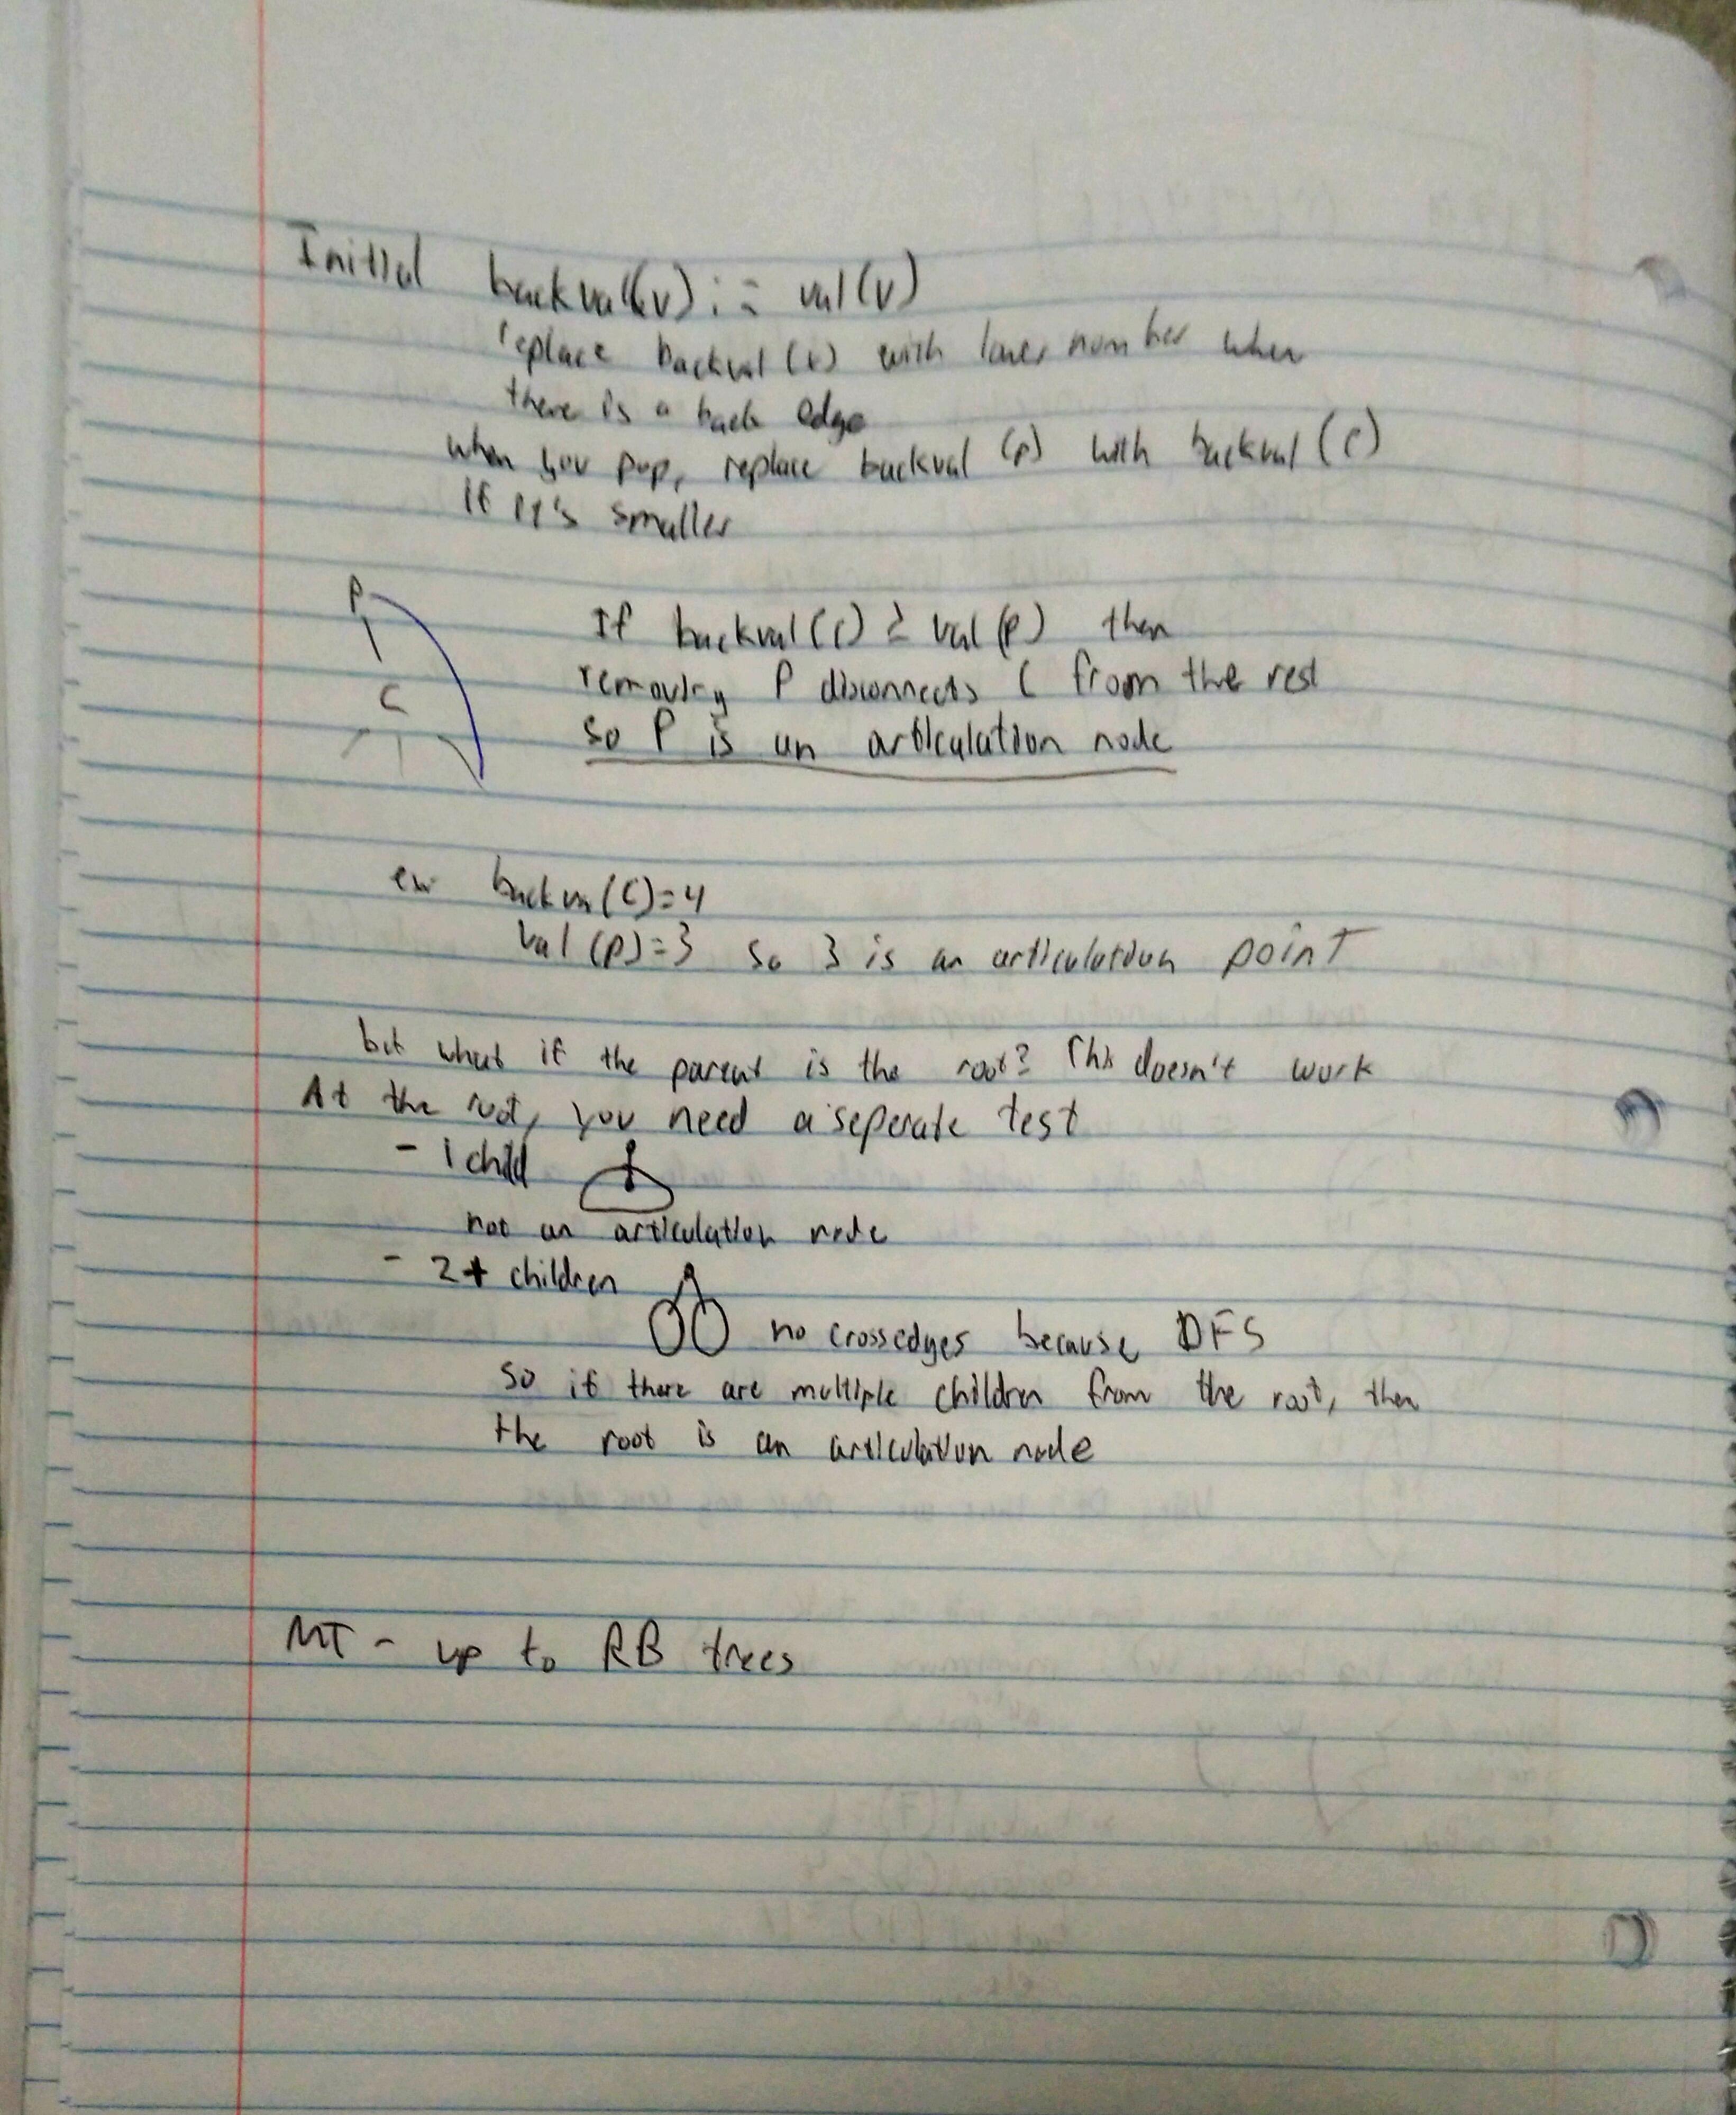 Initial backval(v) := val(v)
replace backval(v) with lower number when
there is a back edge
when you pop, replace backval (p) with backval (c)
if it's smaller
P
C
If backval(c) ≥ val(p) then
removing P disconnects C from the rest
so P is an articulation node
ex backva(c)=4
val (p)=3 so 3 is an articulation point
but what if the parent is the root? This doesn't work
At the root, you need a seperate test
- 1 child
not an articulation node
- 2+ children
no crossedges because DFS
so if there are multiple children from the root, then
the root is an articulation node
MT - up to RB trees